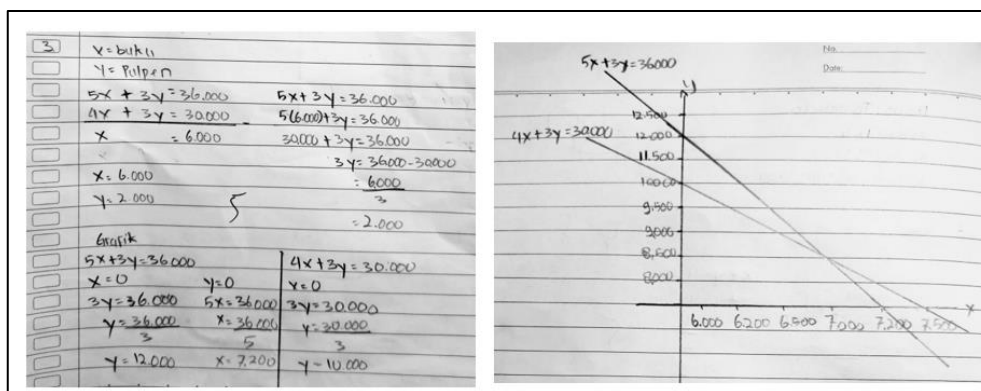 3
X = buku
Y = Pulpen
5x + 3y = 36.000
4x + 3y = 30.000 -
x = 6.000
x = 6.000
y = 2.000
5x + 3y = 36.000
5(6.000) + 3y = 36.000
30.000 + 3y = 36.000
3y = 36.000 - 30.000
= 6.000
3
= 2.000
5
Grafik
5x + 3y = 36.000
x = 0 y = 0
3y = 36.000 5x = 36.000
y = 36.000 x = 36.000
3 5
y = 12.000 x = 7.200
4x + 3y = 30.000
x = 0
3y = 30.000
y = 30.000
3
y = 10.000
No.
Date:
5x + 3y = 36000
y
4x + 3y = 30.000
12.500
12.000
11.500
10000
9.500
9000
8,500
8,000
x
6.000 6.200 6.500 7.000 7.200 7.500